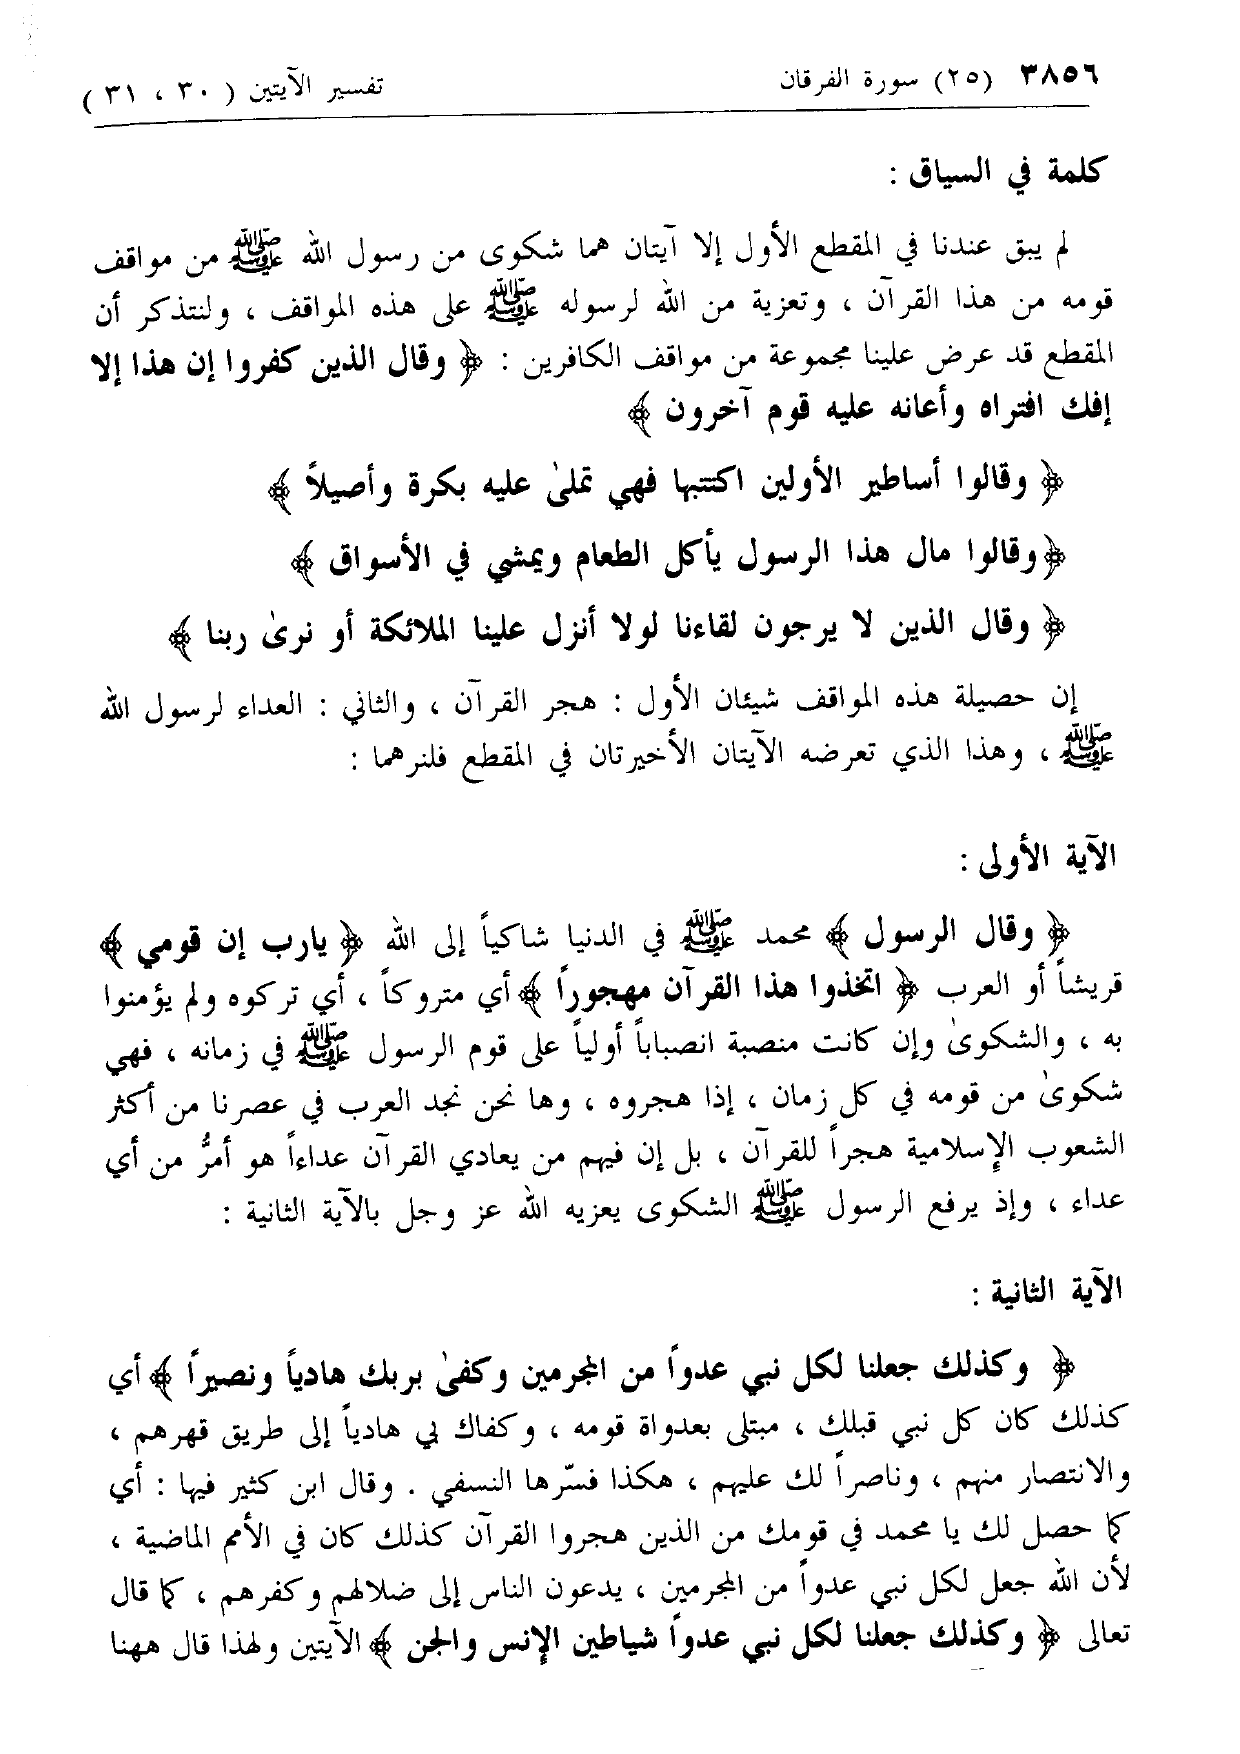 ٣٨٥٦ (٢٥) سورة الفرقان تفسير الآيتين ( ٣٠ ، ٣١ )
كلمة في السياق :
لم يبق عندنا في المقطع الأول إلا آيتان هما شكوى من رسول الله ﷺ من مواقف
قومه من هذا القرآن ، وتعزية من الله لرسوله ﷺ على هذه المواقف ، ولنتذكر أن
المقطع قد عرض علينا مجموعة من مواقف الكافرين : ﴿ وقال الذين كفروا إن هذا إلا
إفك افتراه وأعانه عليه قوم آخرون ﴾
﴿ وقالوا أساطير الأولين اكتتبها فهي تملىٰ عليه بكرة وأصيلاً ﴾
﴿ وقالوا مال هذا الرسول يأكل الطعام ويمشي في الأسواق ﴾
﴿ وقال الذين لا يرجون لقاءنا لولا أنزل علينا الملائكة أو نرىٰ ربنا ﴾
إن حصيلة هذه المواقف شيئان الأول : هجر القرآن ، والثاني : العداء لرسول الله
ﷺ ، وهذا الذي تعرضه الآيتان الأخيرتان في المقطع فلنرهما :
الآية الأولى :
﴿ وقال الرسول ﴾ محمد ﷺ في الدنيا شاكياً إلى الله ﴿ يارب إن قومي ﴾
قريشاً أو العرب ﴿ اتخذوا هذا القرآن مهجوراً ﴾ أي متروكاً ، أي تركوه ولم يؤمنوا
به ، والشكوىٰ وإن كانت منصبة انصباباً أولياً على قوم الرسول ﷺ في زمانه ، فهي
شكوىٰ من قومه في كل زمان ، إذا هجروه ، وها نحن نجد العرب في عصرنا من أكثر
الشعوب الإسلامية هجراً للقرآن ، بل إن فيهم من يعادي القرآن عداءاً هو أمرُّ من أي
عداء ، وإذ يرفع الرسول ﷺ الشكوى يعزيه الله عز وجل بالآية الثانية :
الآية الثانية :
﴿ وكذلك جعلنا لكل نبي عدواً من المجرمين وكفىٰ بربك هادياً ونصيراً ﴾ أي
كذلك كان كل نبي قبلك ، مبتلى بعدواة قومه ، وكفاك بي هادياً إلى طريق قهرهم ،
والانتصار منهم ، وناصراً لك عليهم ، هكذا فسّرها النسفي . وقال ابن كثير فيها : أي
كما حصل لك يا محمد في قومك من الذين هجروا القرآن كذلك كان في الأمم الماضية ،
لأن الله جعل لكل نبي عدواً من المجرمين ، يدعون الناس إلى ضلالهم وكفرهم ، كما قال
تعالى ﴿ وكذلك جعلنا لكل نبي عدواً شياطين الإنس والجن ﴾ الآيتين ولهذا قال ههنا